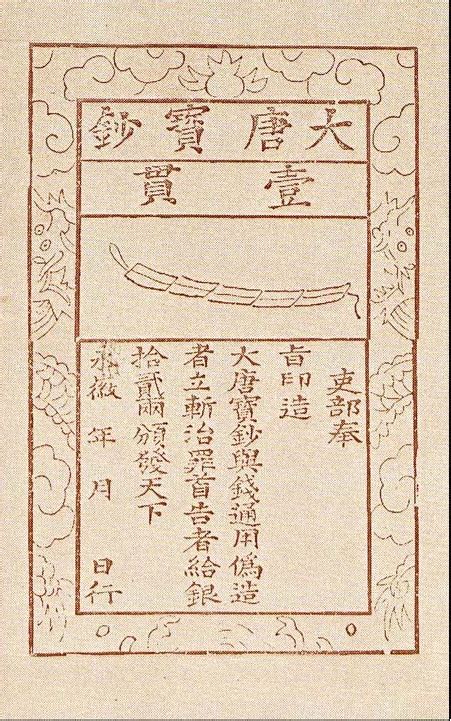 大唐寶鈔
壹貫
吏部奉
旨印造
大唐寶鈔與錢通用僞造
者立斬治罪首告者給銀
拾貳兩頒發天下
永徽年月日行